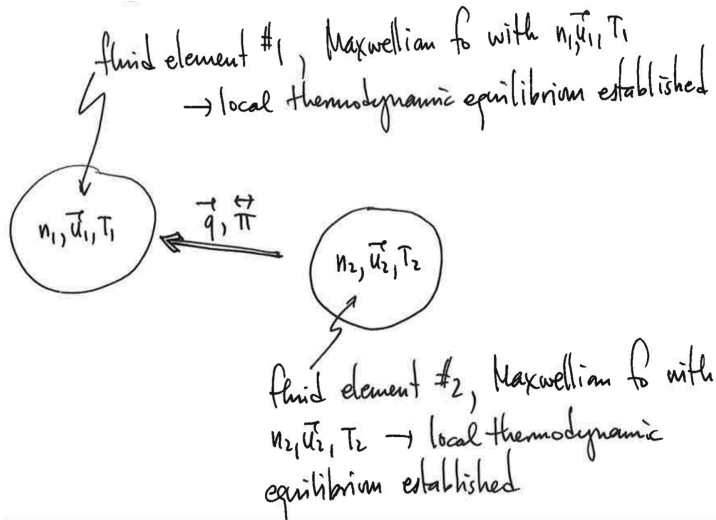 fluid element #1, Maxwellian f₀ with n₁, u⃗₁, T₁
→ local thermodynamic equilibrium established
n₁, u⃗₁, T₁
q⃗, π⃡
n₂, u⃗₂, T₂
fluid element #2, Maxwellian f₀ with
n₂, u⃗₂, T₂ → local thermodynamic
equilibrium established